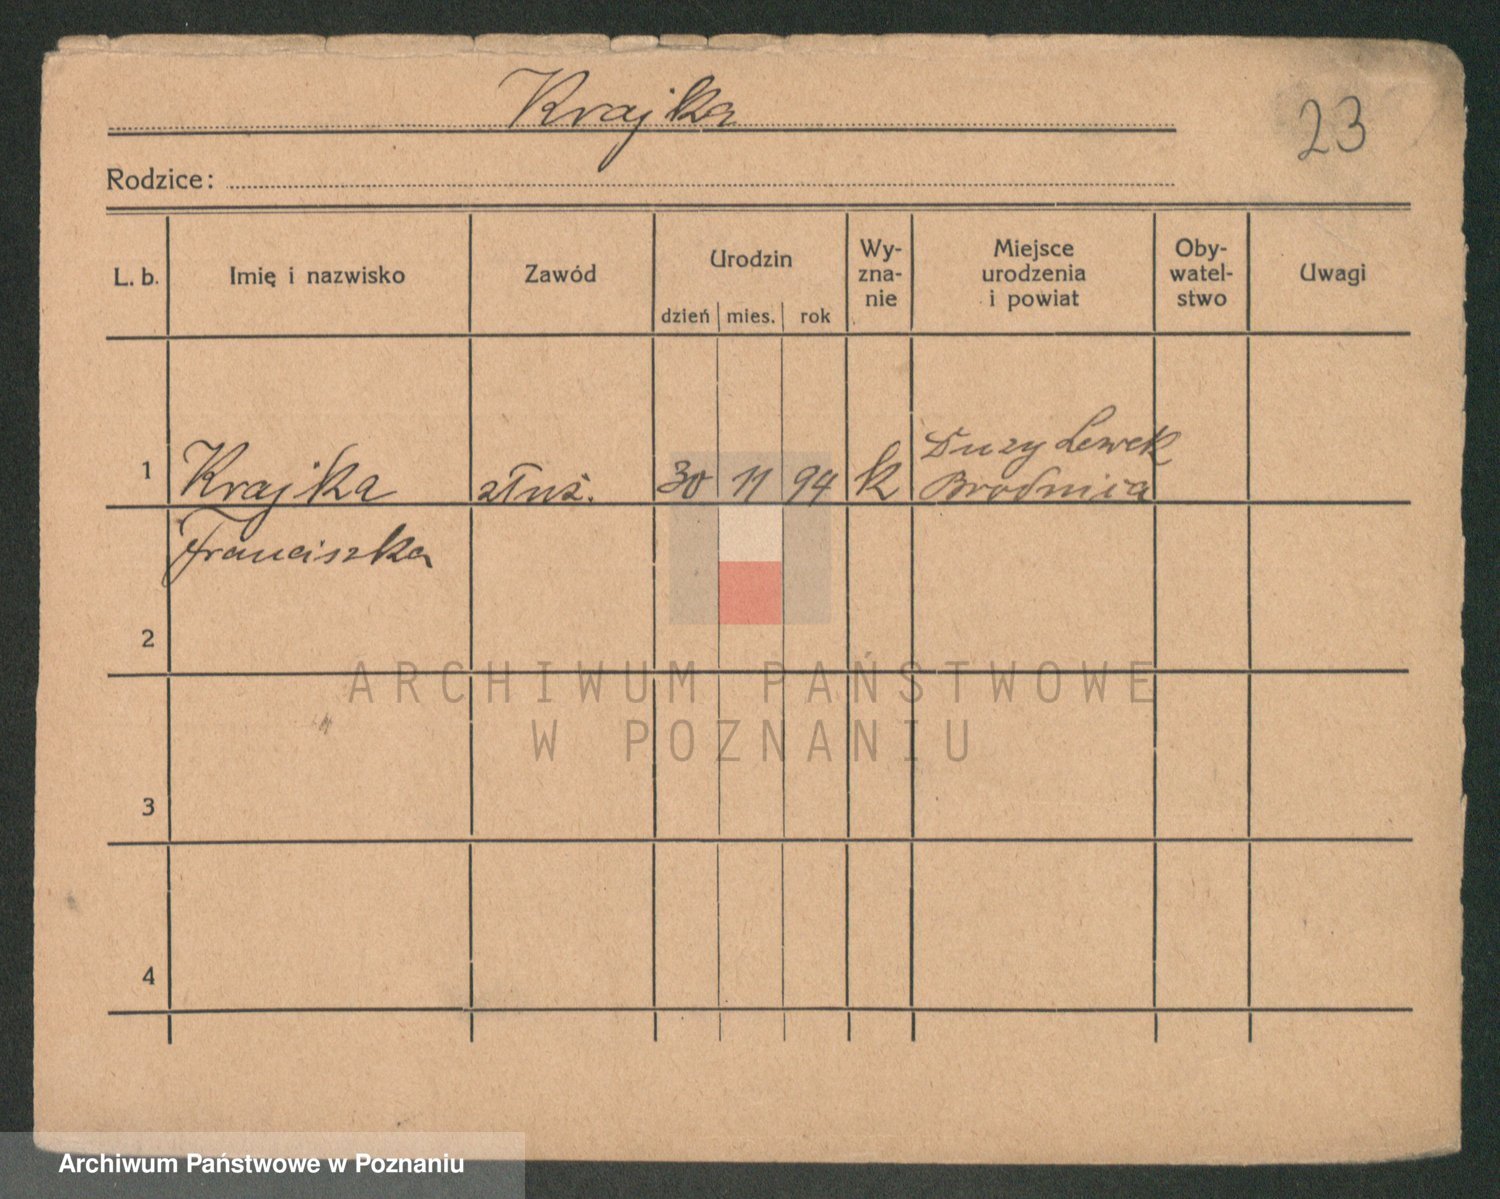 Krajka
23
Rodzice:
L. b.
Imię i nazwisko
Zawód
Urodzin
dzień mies. rok
Wy-
zna-
nie
Miejsce
urodzenia
i powiat
Oby-
watel-
stwo
Uwagi
1 Krajka służ. 30 11 94 k Duży Lewek
Brodnica
Franciszka
2
3
4
ARCHIWUM PAŃSTWOWE
W POZNANIU
Archiwum Państwowe w Poznaniu